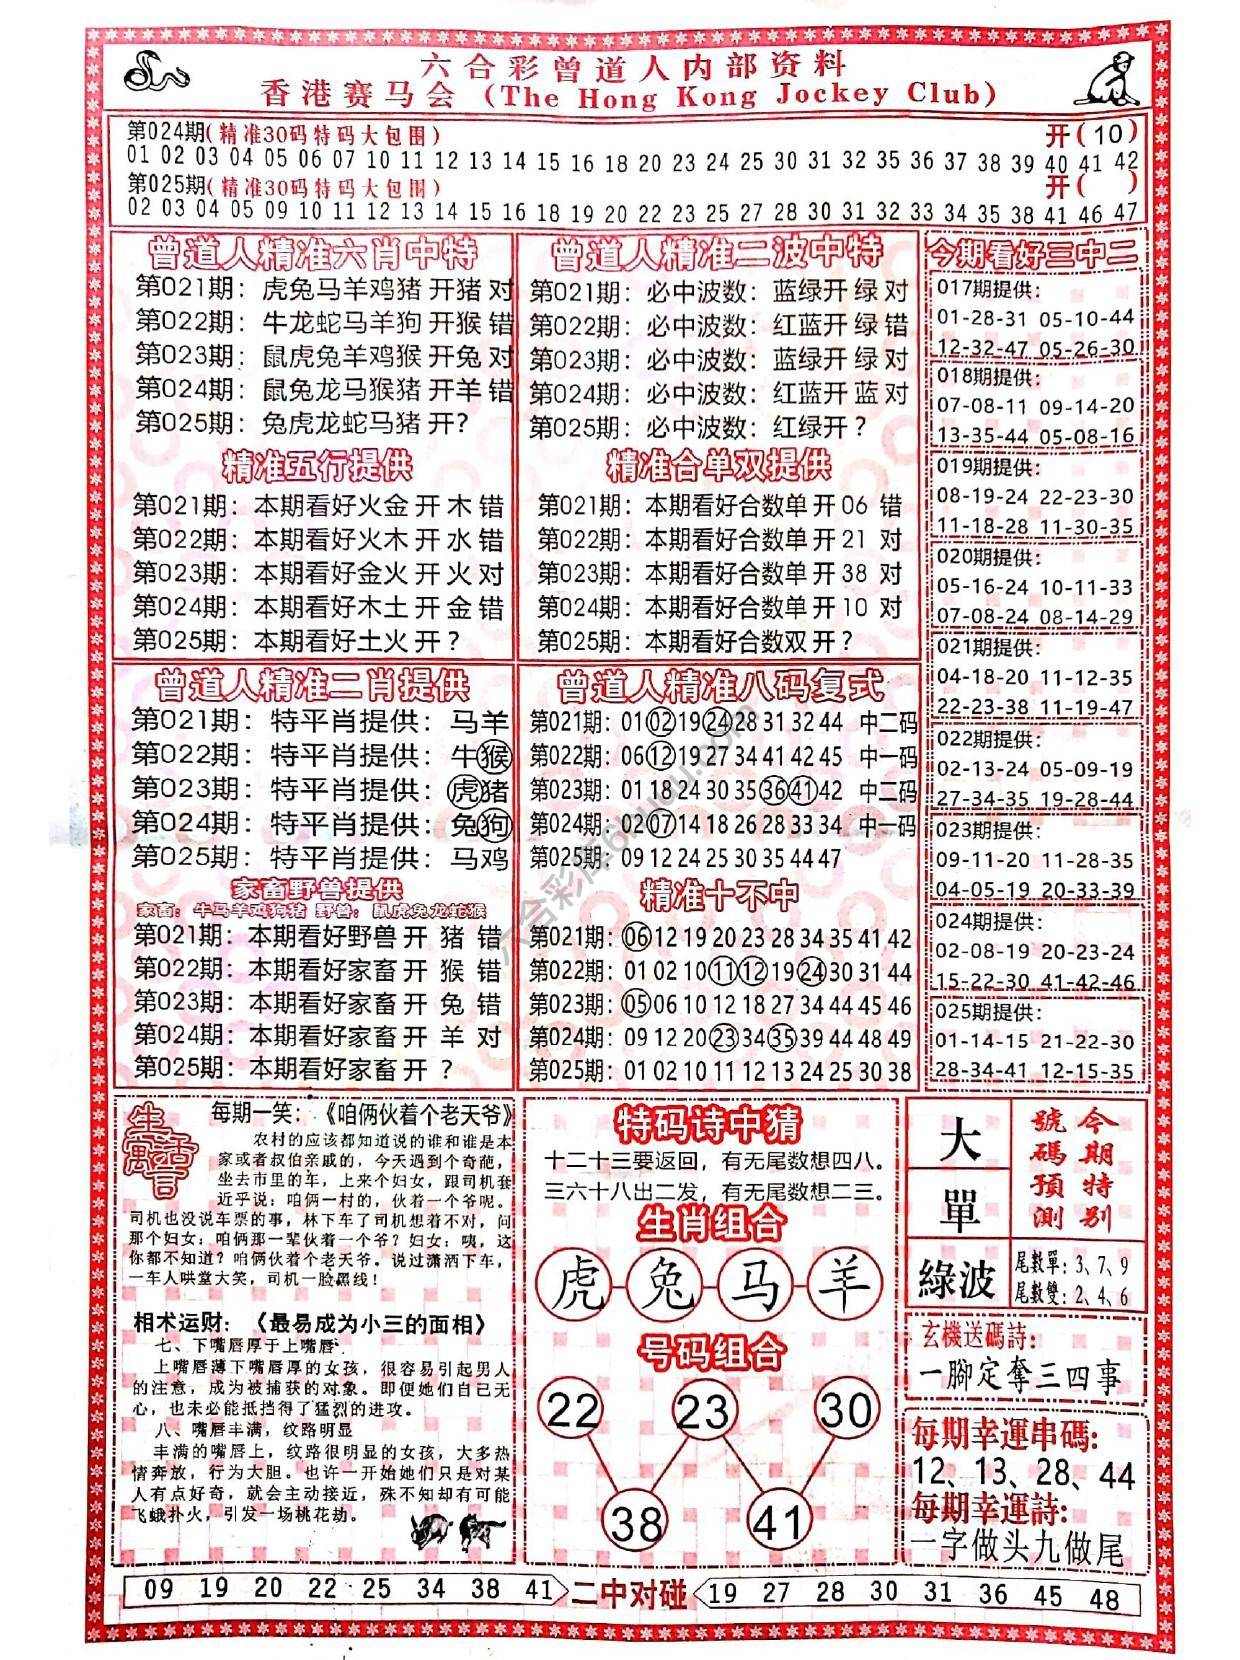 六合彩曾道人内部资料
香港赛马会 (The Hong Kong Jockey Club)
第024期(精准30码特码大包围) 开(10)
01 02 03 04 05 06 07 10 11 12 13 14 15 16 18 20 23 24 25 30 31 32 35 36 37 38 39 40 41 42
第025期(精准30码特码大包围) 开( )
02 03 04 05 09 10 11 12 13 14 15 16 18 19 20 22 23 25 27 28 30 31 32 33 34 35 38 41 46 47
曾道人精准六肖中特
第021期：虎兔马羊鸡猪开猪 对
第022期：牛龙蛇马羊狗开猴 错
第023期：鼠虎兔羊鸡猴开兔 对
第024期：鼠兔龙马猴猪开羊 错
第025期：兔虎龙蛇马猪开？
精准五行提供
第021期：本期看好火金开木 错
第022期：本期看好火木开水 错
第023期：本期看好金火开火 对
第024期：本期看好木土开金 错
第025期：本期看好土火开？
曾道人精准二波中特
第021期：必中波数：蓝绿开绿 对
第022期：必中波数：红蓝开绿 错
第023期：必中波数：蓝绿开绿 对
第024期：必中波数：红蓝开蓝 对
第025期：必中波数：红绿开？
精准合单双提供
第021期：本期看好合数单开06 错
第022期：本期看好合数单开21 对
第023期：本期看好合数单开38 对
第024期：本期看好合数单开10 对
第025期：本期看好合数双开？
今期看好三中二
017期提供：
01-28-31 05-10-44
12-32-47 05-26-30
018期提供：
07-08-11 09-14-20
13-35-44 05-08-16
019期提供：
08-19-24 22-23-30
11-18-28 11-30-35
020期提供：
05-16-24 10-11-33
07-08-24 08-14-29
021期提供：
04-18-20 11-12-35
22-23-38 11-19-47
022期提供：
02-13-24 05-09-19
27-34-35 19-28-44
023期提供：
09-11-20 11-28-35
04-05-19 20-33-39
024期提供：
02-08-19 20-23-24
15-22-30 41-42-46
025期提供：
01-14-15 21-22-30
28-34-41 12-15-35
曾道人精准二肖提供
第021期：特平肖提供：马羊
第022期：特平肖提供：牛猴
第023期：特平肖提供：虎猪
第024期：特平肖提供：兔狗
第025期：特平肖提供：马鸡
家畜野兽提供
家畜：牛马羊鸡狗猪 野兽：鼠虎兔龙蛇猴
第021期：本期看好野兽开 猪 错
第022期：本期看好家畜开 猴 错
第023期：本期看好家畜开 兔 错
第024期：本期看好家畜开 羊 对
第025期：本期看好家畜开 ？
曾道人精准八码复式
第021期：01 02 19 24 28 31 32 44 中二码
第022期：06 12 19 27 34 41 42 45 中一码
第023期：01 18 24 30 35 36 41 42 中二码
第024期：02 07 14 18 26 28 33 34 中一码
第025期：09 12 24 25 30 35 44 47
精准十不中
第021期：06 12 19 20 23 28 34 35 41 42
第022期：01 02 10 11 12 19 24 30 31 44
第023期：05 06 10 12 18 27 34 44 45 46
第024期：09 12 20 23 34 35 39 44 48 49
第025期：01 02 10 11 12 13 24 25 30 38
六合彩库6huu.com
生活寓言
每期一笑：《咱俩伙着个老天爷》
农村的应该都知道说的谁和谁是本
家或者叔伯亲戚的，今天遇到个奇葩，
坐去市里的车，上来个妇女，跟司机套
近乎说：咱俩一村的，伙着一个爷呢。
司机也没说车票的事，林下车了司机想着不对，问
那个妇女：咱俩那一辈伙着一个爷？妇女：咦，这
你都不知道？咱俩伙着个老天爷。说过潇洒下车，
一车人哄堂大笑，司机一脸黑线！
相术运财：《最易成为小三的面相》
七、下嘴唇厚于上嘴唇.
上嘴唇薄下嘴唇厚的女孩，很容易引起男人
的注意，成为被捕获的对象。即便她们自己无
心，也未必能抵挡得了猛烈的进攻。
八、嘴唇丰满，纹路明显
丰满的嘴唇上，纹路很明显的女孩，大多热
情奔放，行为大胆。也许一开始她们只是对某
人有点好奇，就会主动接近，殊不知却有可能
飞蛾扑火，引发一场桃花劫。
特码诗中猜
十二十三要返回，有无尾数想四八。
三六十八出二发，有无尾数想二三。
生肖组合
虎 兔 马 羊
号码组合
22 23 30
38 41
大
單
綠波
今期特别
號碼預測
尾數單：3、7、9
尾數雙：2、4、6
玄機送碼詩：
一腳定奪三四事
每期幸運串碼：
12、13、28、44
每期幸運詩：
一字做头九做尾
09 19 20 22 25 34 38 41 二中对碰 19 27 28 30 31 36 45 48